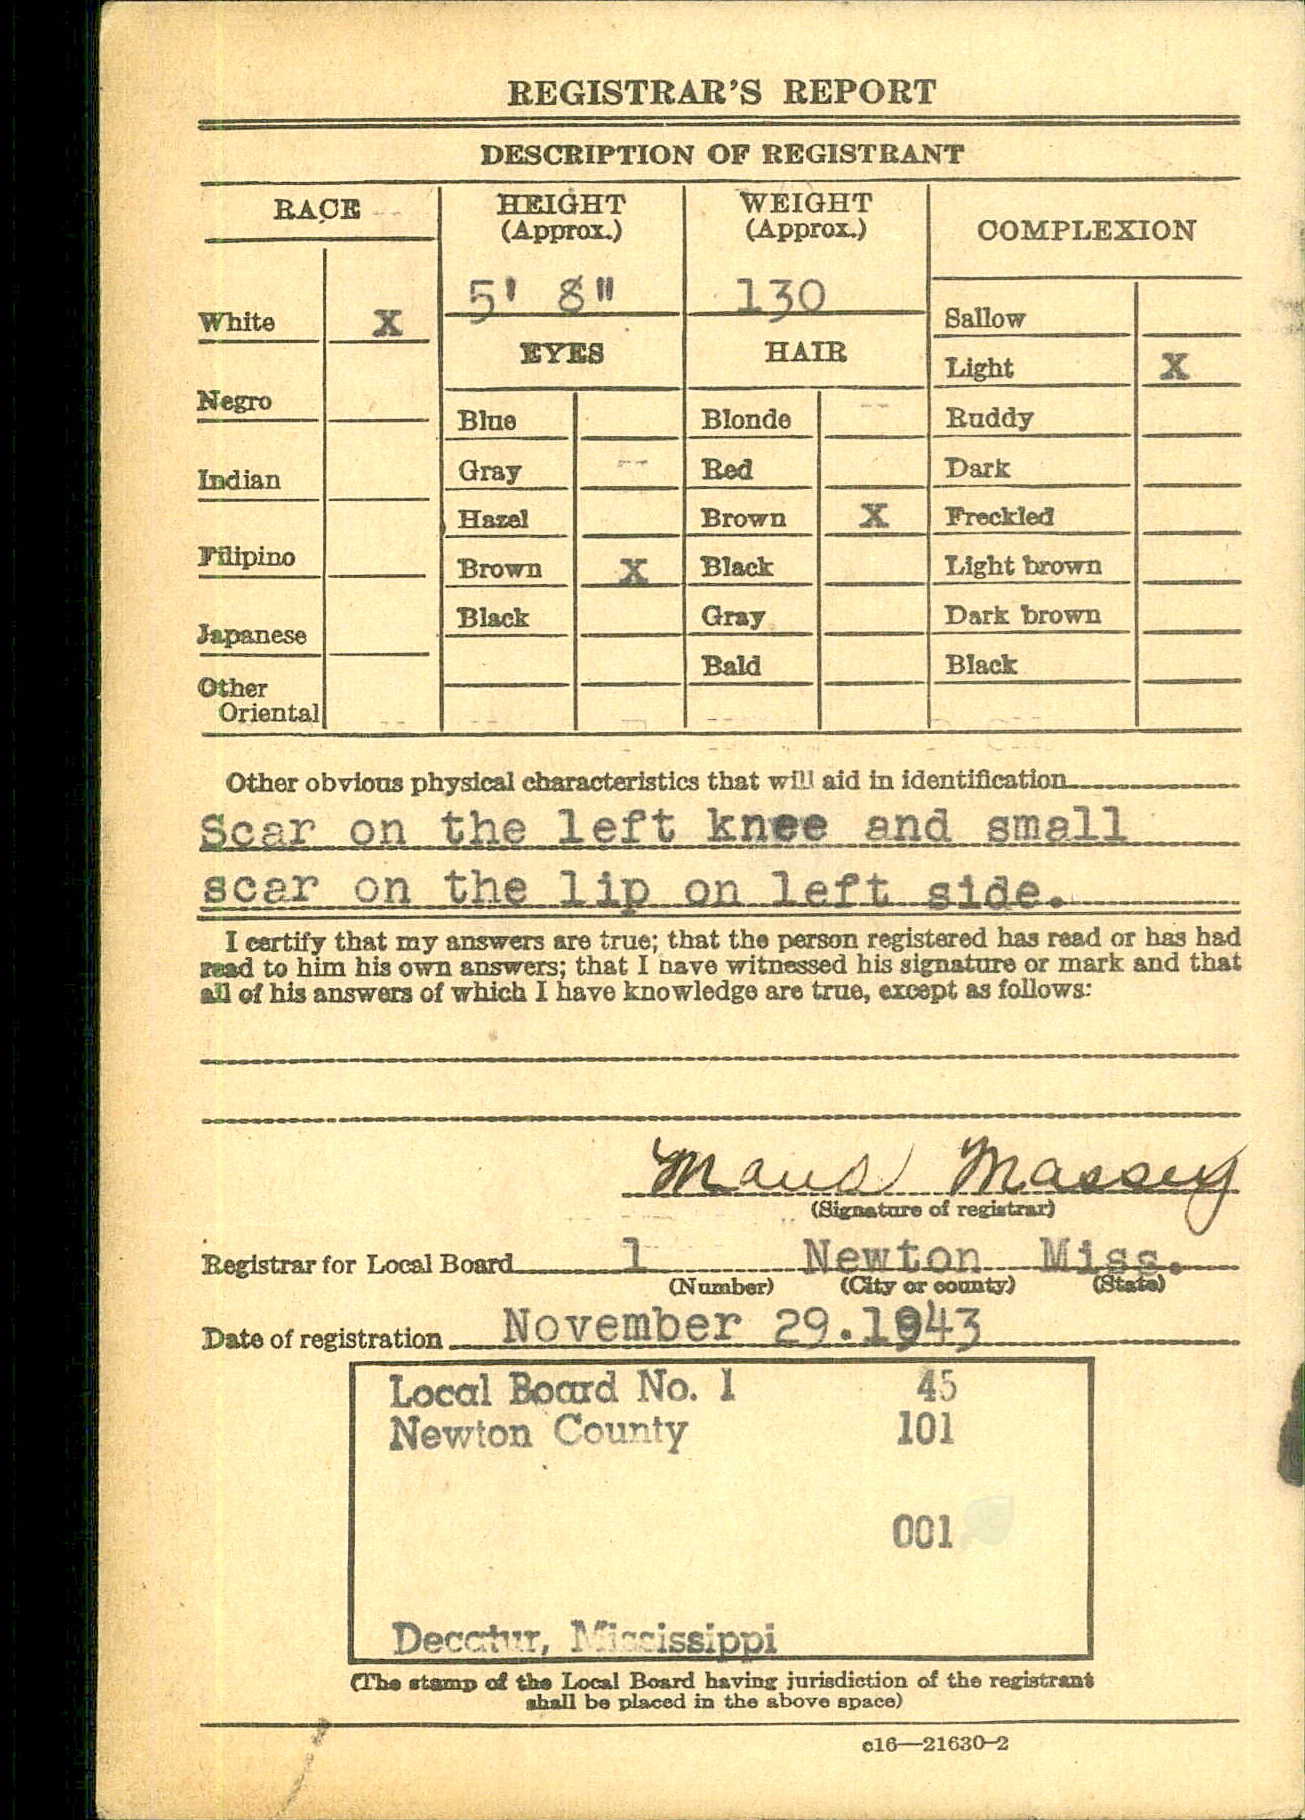 REGISTRAR'S REPORT
DESCRIPTION OF REGISTRANT
RACE
HEIGHT
(Approx.)
WEIGHT
(Approx.)
COMPLEXION
5' 8"
130
White X
Sallow
EYES
HAIR
Light X
Negro
Blue
Blonde
Ruddy
Indian
Gray
Red
Dark
Hazel
Brown X
Freckled
Filipino
Brown X
Black
Light brown
Japanese
Black
Gray
Dark brown
Bald
Black
Other
Oriental
Other obvious physical characteristics that will aid in identification
Scar on the left knee and small
scar on the lip on left side.
I certify that my answers are true; that the person registered has read or has had
read to him his own answers; that I have witnessed his signature or mark and that
all of his answers of which I have knowledge are true, except as follows:
Maud Massey
(Signature of registrar)
Registrar for Local Board 1 Newton Miss.
(Number) (City or county) (State)
Date of registration November 29.1943
Local Board No. 1 45
Newton County 101
001
Decatur, Mississippi
(The stamp of the Local Board having jurisdiction of the registrant
shall be placed in the above space)
c16—21630-2